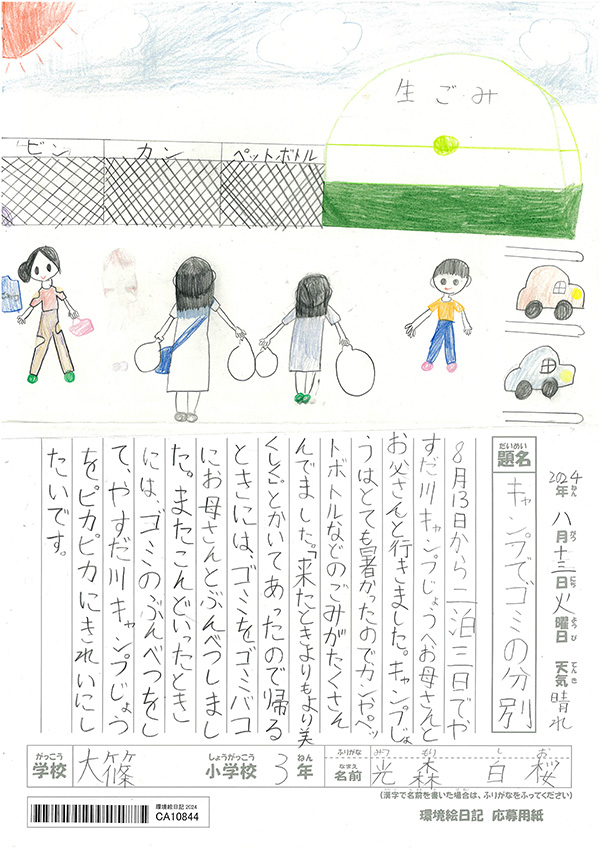 生ごみ
ビン
カン
ペットボトル
2024年 八月十三日 火曜日 天気 晴れ
ねん がつ にち ようび てんき
だいめい
題名
キャンプでゴミの分別
8月13日から二泊三日でや
すだ川キャンプじょうへお母さんと
お父さんと行きました。キャンプじょ
うはとても暑かったのでカンやペッ
トボトルなどのごみがたくさん
んでました。「来たときよりもより美
くしく」とかいてあったので帰る
ときには、ゴミをゴミバコ
にお母さんとぶんべつしまし
た。またこんどいったとき
には、ゴミのぶんべつをし
て、やすだ川キャンプじょう
をピカピカにきれいにし
たいです。
がっこう しょうがっこう ねん
学校 大篠 小学校 3年
ふりがな みつ もり し お
なまえ
名前 光森 白桜
(漢字で名前を書いた場合は、ふりがなをふってください)
環境絵日記2024
CA10844
環境絵日記 応募用紙